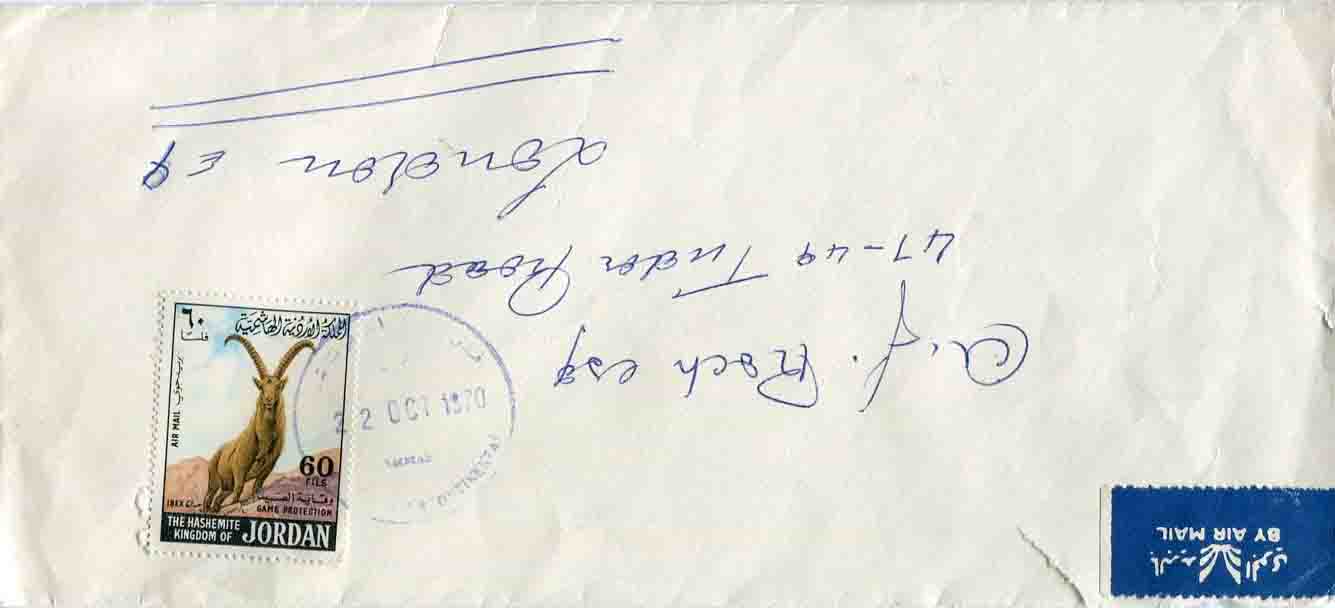 A. J. Roch esq
47-49 Tudor Road
London E9
٦٠
فلسًا
المملكة الأردنية الهاشمية
AIR MAIL بريد جوي
60
FILS
IBEX
وقاية الصيد
GAME PROTECTION
THE HASHEMITE
KINGDOM OF JORDAN
22 OCT 1970
البريد الجوي
BY AIR MAIL